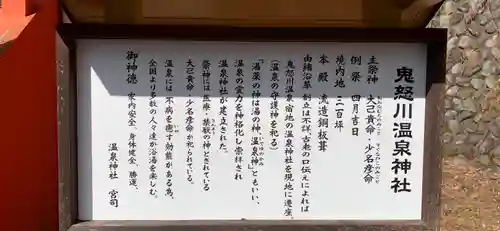 鬼怒川温泉神社
主祭神 大己貴命・少名彦命
例祭 四月吉日
境内地 三百坪
本殿 流造銅板葺
由緒沿革 創立は不詳、古老の口伝えによれば
鬼怒川温泉宿地の温泉神社を現地に遷座。
(温泉の守護神を祀る)
「湯薬の神は湯の神、温泉神」ともいい、
温泉の霊力を神格化し崇拝され
温泉神社が建立された。
祭神には医療・禁厭の神とされている
大己貴命・少名彦命が祀られている。
温泉には不病を癒す効能がある為、
全国より多数の人々達が浴湯を楽しむ。
御神徳 家内安全、身体健全、勝運、
温泉神社 宮司